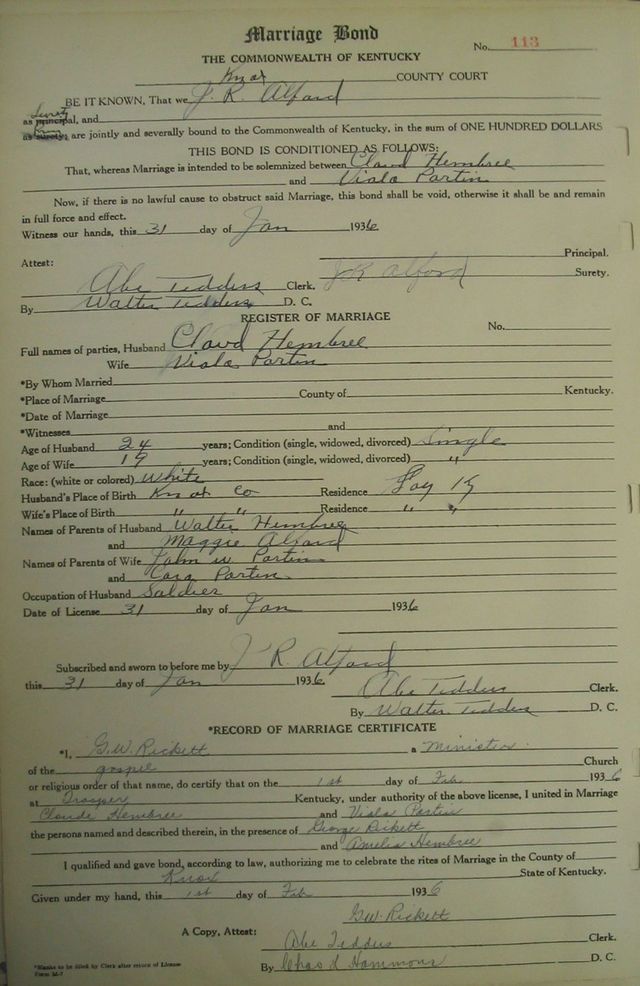 Marriage Bond
No. 113
THE COMMONWEALTH OF KENTUCKY
Knox COUNTY COURT
BE IT KNOWN, That we J. R. Alford
Surety
as principal, and
as surety, are jointly and severally bound to the Commonwealth of Kentucky, in the sum of ONE HUNDRED DOLLARS
THIS BOND IS CONDITIONED AS FOLLOWS:
That, whereas Marriage is intended to be solemnized between Claud Hembree
and Viola Partin
Now, if there is no lawful cause to obstruct said Marriage, this bond shall be void, otherwise it shall be and remain
in full force and effect.
Witness our hands, this 31 day of Jan 1936
Principal.
Attest: J R Alford Surety.
Abe Tedders Clerk.
By Walter Tedders D. C.
REGISTER OF MARRIAGE
No.
Full names of parties, Husband Claud Hembree
Wife Viola Partin
*By Whom Married
*Place of Marriage County of Kentucky.
*Date of Marriage
*Witnesses and
Age of Husband 24 years; Condition (single, widowed, divorced) Single
Age of Wife 19 years; Condition (single, widowed, divorced) "
Race: (white or colored) White
Husband's Place of Birth Knox Co Residence Ky
Wife's Place of Birth " " Residence " "
Names of Parents of Husband Walter Hembree
and Maggie Alford
Names of Parents of Wife John W Partin
and Cora Partin
Occupation of Husband Soldier
Date of License 31 day of Jan 1936
Subscribed and sworn to before me by J R. Alford
this 31 day of Jan 1936 Abe Tedders Clerk.
By Walter Tedders D. C.
*RECORD OF MARRIAGE CERTIFICATE
*I, G.W. Rickett a Minister
of the gospel Church
or religious order of that name, do certify that on the 1st day of Feb 1936
at Trosper Kentucky, under authority of the above license, I united in Marriage
Claude Hembree and Viola Partin
the persons named and described therein, in the presence of George Rickett
and Amelia Hembree
I qualified and gave bond, according to law, authorizing me to celebrate the rites of Marriage in the County of
Knox State of Kentucky.
Given under my hand, this 1st day of Feb 1936
G.W. Rickett
A Copy, Attest: Abe Tedders Clerk.
By Chas Hammons D. C.
*Blanks to be filled by Clerk after return of License
Form M-7